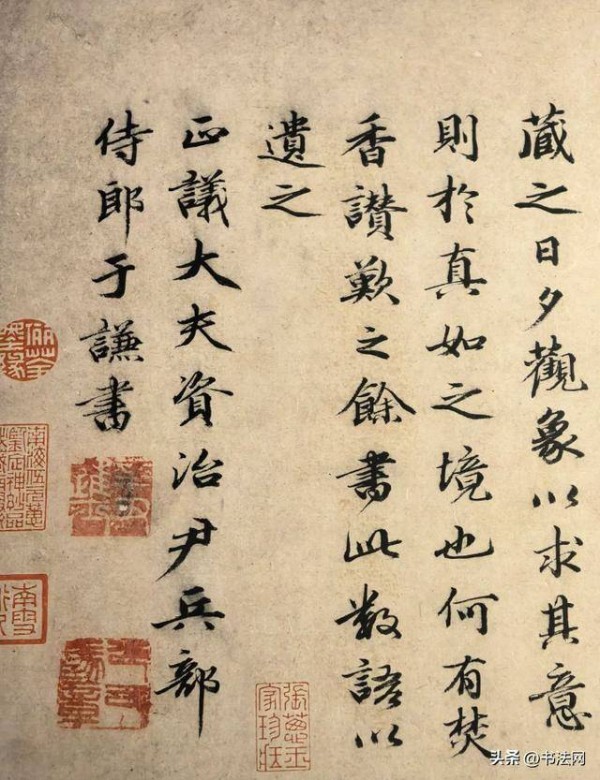 藏之日夕觀象以求其意
則於真如之境也何有焚
香讃歎之餘書此數語以
遺之
正議大夫資治尹兵部
侍郎于謙書
張蔥玉
家珍藏
南雪
头条 @书法网